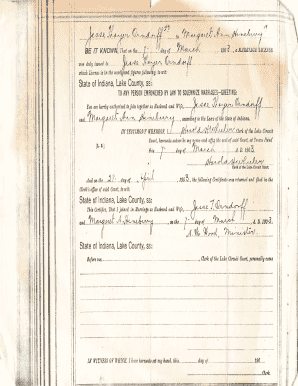 Jesse Thayer Orndorff to Margaret Ann
BE IT KNOWN, That on the 7 day of March 1903, a MARRIAGE LICENSE
was duly issued to Jesse Thayer Orndorff
which License is in the words and figures following, to-wit:
State of Indiana, Lake County, ss:
TO ANY PERSON EMPOWERED BY LAW TO SOLEMNIZE MARRIAGES—GREETING:
You are hereby authorized to join together as Husband and Wife, Jesse Thayer Orndorff
and Margaret Ann according to the Laws of the State of Indiana.
IN TESTIMONY WHEREOF, I, Harold Clerk of the Lake Circuit
[L. S.] Court, hereunto subscribe my name and affix the seal of said Court, at Crown Point
on 7 day of March A. D. 1903
Harold
Clerk of the Lake Circuit Court.
And on the 20 day of April 1903, the following Certificate was returned and filed in the
Clerk's office of said Court, to-wit:
State of Indiana, Lake County, ss:
This Certifies, That I joined in Marriage as Husband and Wife, Jesse T. Orndorff
and Margaret A. on the 7 day of March A. D. 1903
Wood, Minister
State of Indiana, Lake County, ss:
Before me, Clerk of the Lake Circuit Court, personally came
IN WITNESS OF WHICH, I have hereunto set my hand, this day of 190
Clerk.